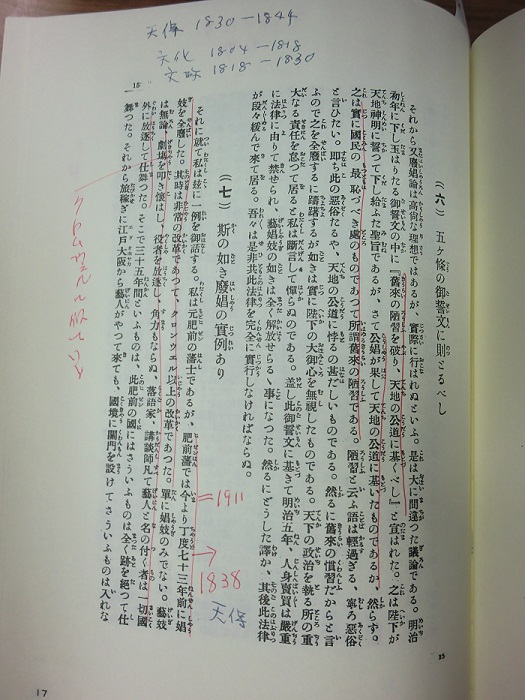 天保 1830－1844
文化 1804－1818
文政 1818－1830
15
(六) 五ケ條の御誓文に則とるべし
それから又廢娼論は高尚な理想ではあるが、實際に行はれぬといふ。是は大に間違つた議論である。明治
初年に下し玉はりたる御誓文の中に『舊來の陋習を破り、天地の公道に基くべし』と宣はれた。之は陛下が
天地神明に誓つて下し給ふた聖旨であるが、さて公娼が果して天地の公道に基いたものであるか、然らず。
之は實に國民の最恥づべき處のものであつて所謂舊來の陋習である。陋習と云ふ語は輕過ぎる、寧ろ惡俗
と言ひたい。即ち此の惡俗たるや、天地の公道に悖るの甚だしいものである。然るに舊來の慣習だからと言
ふので之を全廢するに躊躇するが如きは實に陛下の大御心を無視したものである。天下の政治を執る所の重
大なる責任を怠つて居ると私は斷言して憚らぬのである。蓋し此御誓文に基きて明治五年、人身賣買は嚴重
に法律に由りて禁ぜられ、藝娼妓の如きは全く解放せらるゝ事になつた。然るにどうした譯か、其後此法律
が段々緩んで來て居る。吾々は是非共此法律を完全に實行しなければならぬ。
(七) 斯の如き廢娼の實例あり
それに就て私は玆に一例を御話する。私は元肥前の藩士であるが、肥前藩では今より丁度七十三年前に娼
妓を全廢した。其時は非常の改革であつて、クロンウエル以上の改革であつた。單に娼妓のみでない。藝妓
は無論、劇場を叩き懷はし、役者を放逐し、角力もならぬ、落語家、講談師凡て藝人と名の付く者は一切國
外に放逐して仕舞つた。そこで三十五年間といふものは、此肥前の國にはさういふものは全く跡を絕つて仕
舞つた。それから旅稼ぎに江戸大阪から藝人がやつて來ても、國境に關門を設けてさういふものは入れな
＝1911
→
1838
天保
クロムウェル
35
17